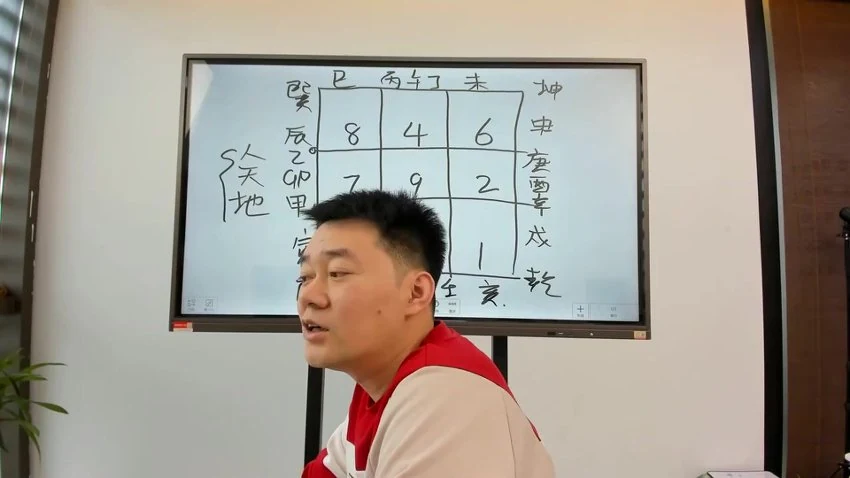 巽 巳 丙午丁 未 坤
辰 8 4 6 申
人 乙 庚
天 卯 7 9 2 酉
地 甲 辛
1 戌
壬 亥 乾